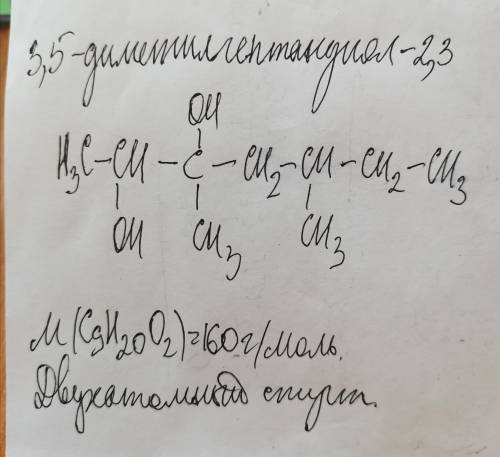 3,5-диметилгептандиол-2,3
OH
H₃C-CH-C-CH₂-CH-CH₂-CH₃
OH CH₃ CH₃
M(C₉H₂₀O₂)=160г/моль.
Двухатомный спирт.